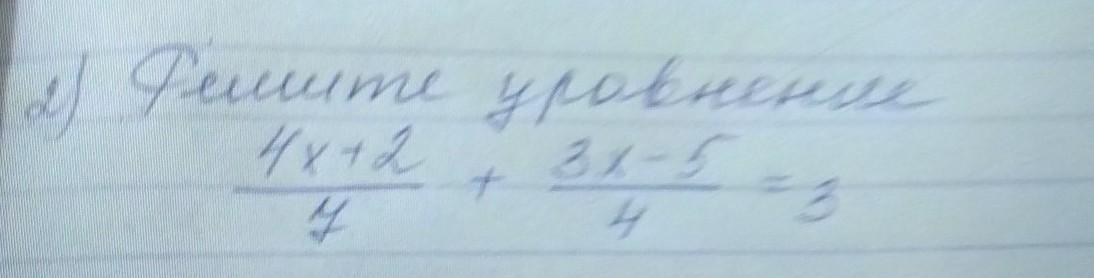 2) Решите уровнение
4x+2/7 + 3x-5/4 = 3